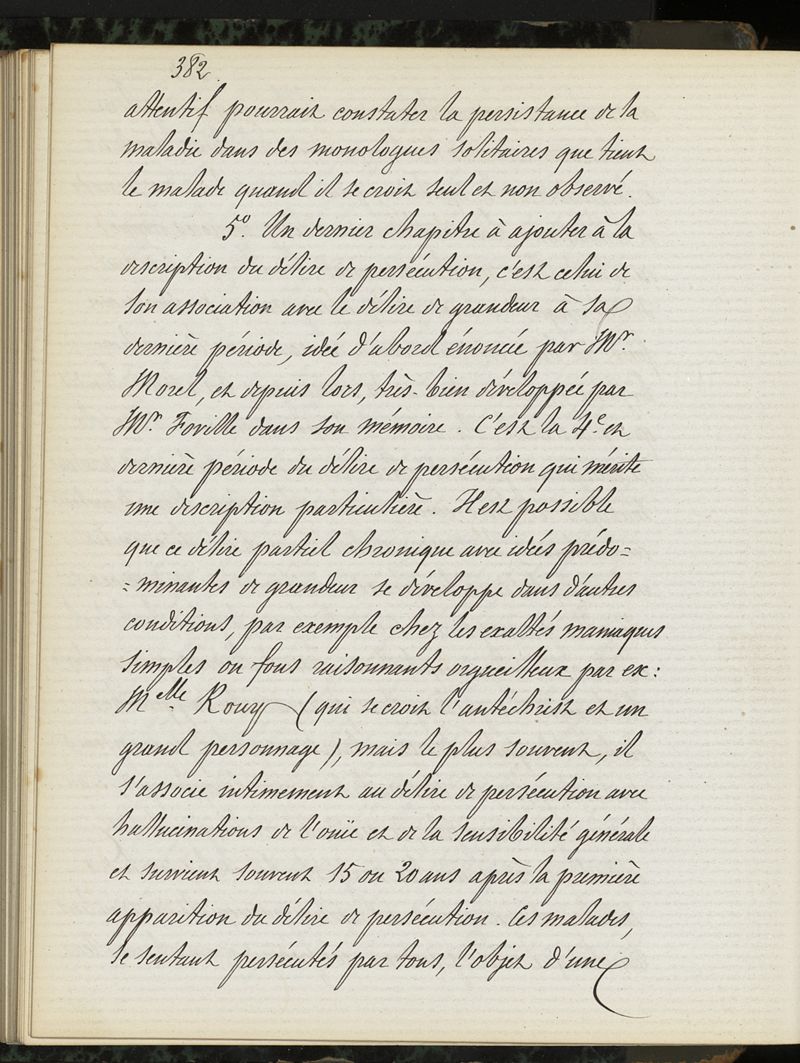 382
attentif pourrait constater la persistance de la
maladie dans des monologues solitaires que tient
le malade quand il se croit seul et non observé.
5º. Un dernier chapitre à ajouter à la
description du délire de persécution, c'est celui de
son association avec le délire de grandeur à sa
dernière période, idée d'abord énoncée par Mr.
Morel, et depuis lors, très-bien développée par
Mr. Foville dans son mémoire. C'est la 4e. et
dernière période du délire de persécution qui mérite
une description particulière. Il est possible
que ce délire partiel chronique avec idées prédo=
=minantes de grandeur se développe dans d'autres
conditions, par exemple chez les exaltés maniaques
simples ou fous raisonnants orgueilleux par ex:
Melle. Rouy (qui se croit l'antéchrist et un
grand personnage), mais le plus souvent, il
s'associe intimement au délire de persécution avec
hallucinations de l'ouïe et de la sensibilité générale
et survient souvent 15 ou 20 ans après la première
apparition du délire de persécution. Ces malades,
se sentant persécutés par tous, l'objet d'une